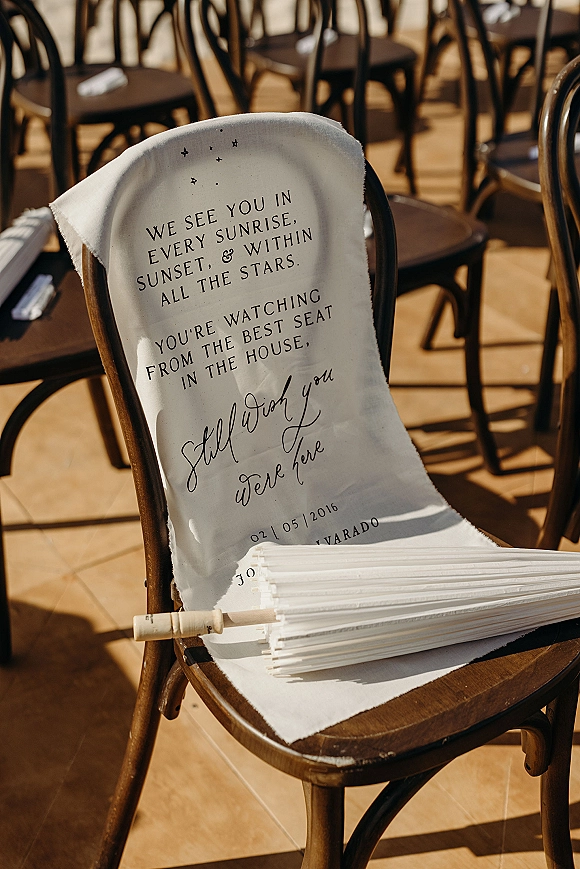 WE SEE YOU IN
EVERY SUNRISE,
SUNSET, & WITHIN
ALL THE STARS.
YOU'RE WATCHING
FROM THE BEST SEAT
IN THE HOUSE,
Still wish you
were here
02 | 05 | 2016